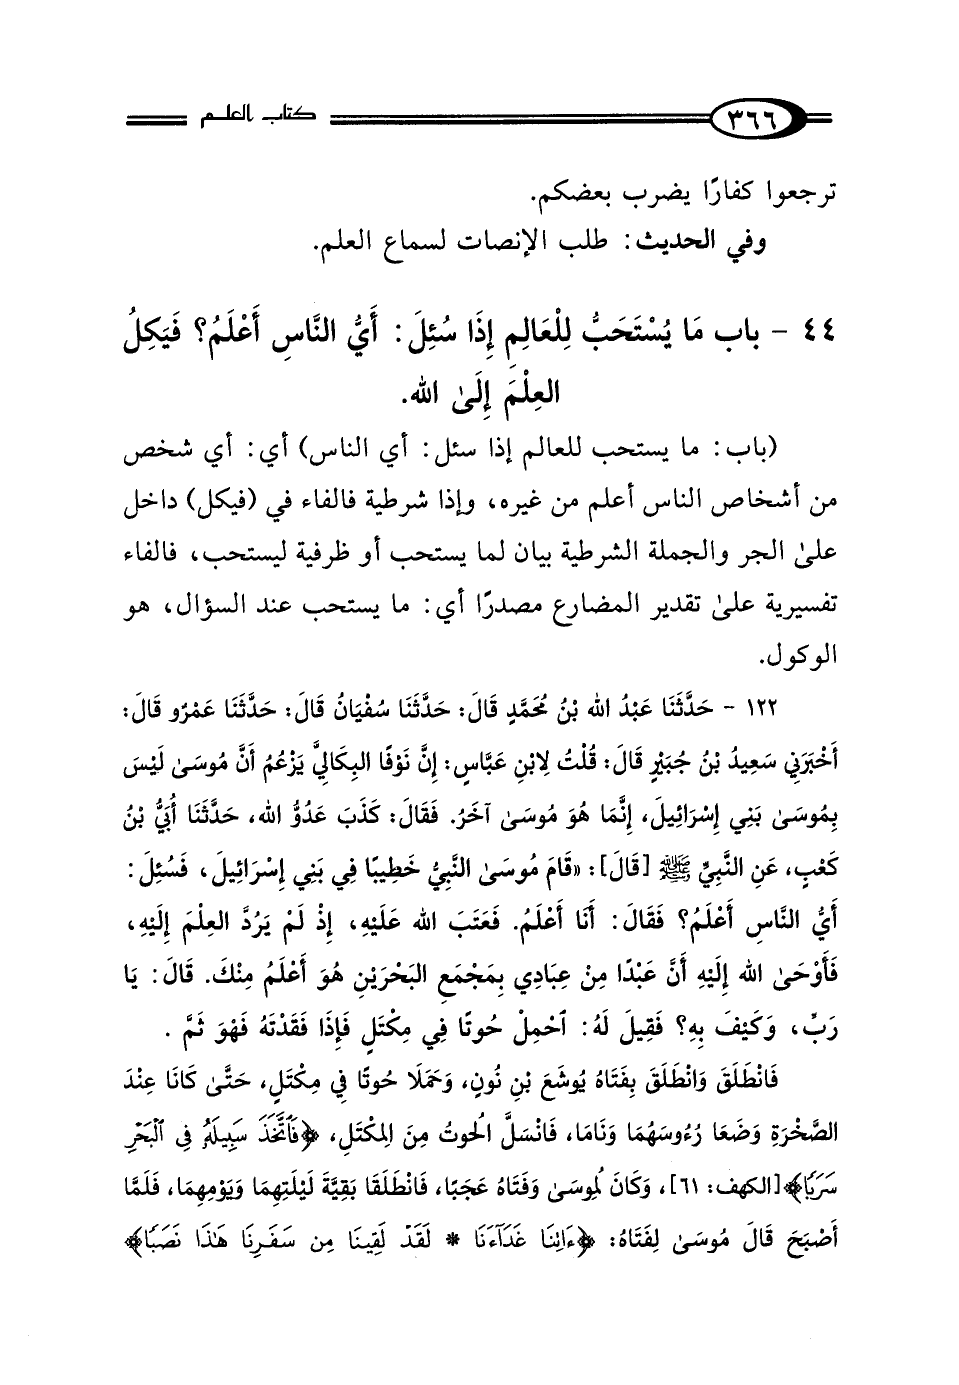 ٣٦٦
كتاب العلم
ترجعوا كفارًا يضرب بعضكم.
وفي الحديث: طلب الإنصات لسماع العلم.
٤٤ - باب مَا يُسْتَحَبُّ لِلْعَالِمِ إِذَا سُئِلَ: أَيُّ النَّاسِ أَعْلَمُ؟ فَيَكِلُ
العِلْمَ إِلَىٰ الله.
(باب: ما يستحب للعالم إذا سئل: أي الناس) أي: أي شخص
من أشخاص الناس أعلم من غيره، وإذا شرطية فالفاء في (فيكل) داخل
علىٰ الجر والجملة الشرطية بيان لما يستحب أو ظرفية ليستحب، فالفاء
تفسيرية علىٰ تقدير المضارع مصدرًا أي: ما يستحب عند السؤال، هو
الوكول.
١٢٢ - حَدَّثَنَا عَبْدُ الله بْنُ مُحَمَّدٍ قَالَ: حَدَّثَنَا سُفْيَانُ قَالَ: حَدَّثَنَا عَمْرٌو قَالَ:
أَخْبَرَنِي سَعِيدُ بْنُ جُبَيْرٍ قَالَ: قُلْتُ لِابْنِ عَبَّاسٍ: إِنَّ نَوْفًا البِكَالِيَّ يَزْعُمُ أَنَّ مُوسَىٰ لَيْسَ
بِمُوسَىٰ بَنِي إِسْرَائِيلَ، إِنَّمَا هُوَ مُوسَىٰ آخَرُ. فَقَالَ: كَذَبَ عَدُوُّ الله، حَدَّثَنَا أُبَيُّ بْنُ
كَعْبٍ، عَنِ النَّبِيِّ ﷺ [قَالَ]: «قَامَ مُوسَىٰ النَّبِيُّ خَطِيبًا فِي بَنِي إِسْرَائِيلَ، فَسُئِلَ:
أَيُّ النَّاسِ أَعْلَمُ؟ فَقَالَ: أَنَا أَعْلَمُ. فَعَتَبَ الله عَلَيْهِ، إِذْ لَمْ يَرُدَّ العِلْمَ إِلَيْهِ،
فَأَوْحَىٰ الله إِلَيْهِ أَنَّ عَبْدًا مِنْ عِبَادِي بِمَجْمَعِ البَحْرَيْنِ هُوَ أَعْلَمُ مِنْكَ. قَالَ: يَا
رَبِّ، وَكَيْفَ بِهِ؟ فَقِيلَ لَهُ: ٱحْمِلْ حُوتًا فِي مِكْتَلٍ فَإِذَا فَقَدْتَهُ فَهْوَ ثَمَّ .
فَانْطَلَقَ وَانْطَلَقَ بِفَتَاهُ يُوشَعَ بْنِ نُونٍ، وَحَمَلَا حُوتًا فِي مِكْتَلٍ، حَتَّىٰ كَانَا عِنْدَ
الصَّخْرَةِ وَضَعَا رُءُوسَهُمَا وَنَامَا، فَانْسَلَّ الحُوتُ مِنَ المِكْتَلِ، ﴿فَٱتَّخَذَ سَبِيلَهُۥ فِي ٱلْبَحْرِ
سَرَبًا﴾ [الكهف: ٦١]، وَكَانَ لِمُوسَىٰ وَفَتَاهُ عَجَبًا، فَانْطَلَقَا بَقِيَّةَ لَيْلَتِهِمَا وَيَوْمِهِمَا، فَلَمَّا
أَصْبَحَ قَالَ مُوسَىٰ لِفَتَاهُ: ﴿ءَاتِنَا غَدَآءَنَا * لَقَدْ لَقِينَا مِن سَفَرِنَا هَٰذَا نَصَبًا﴾